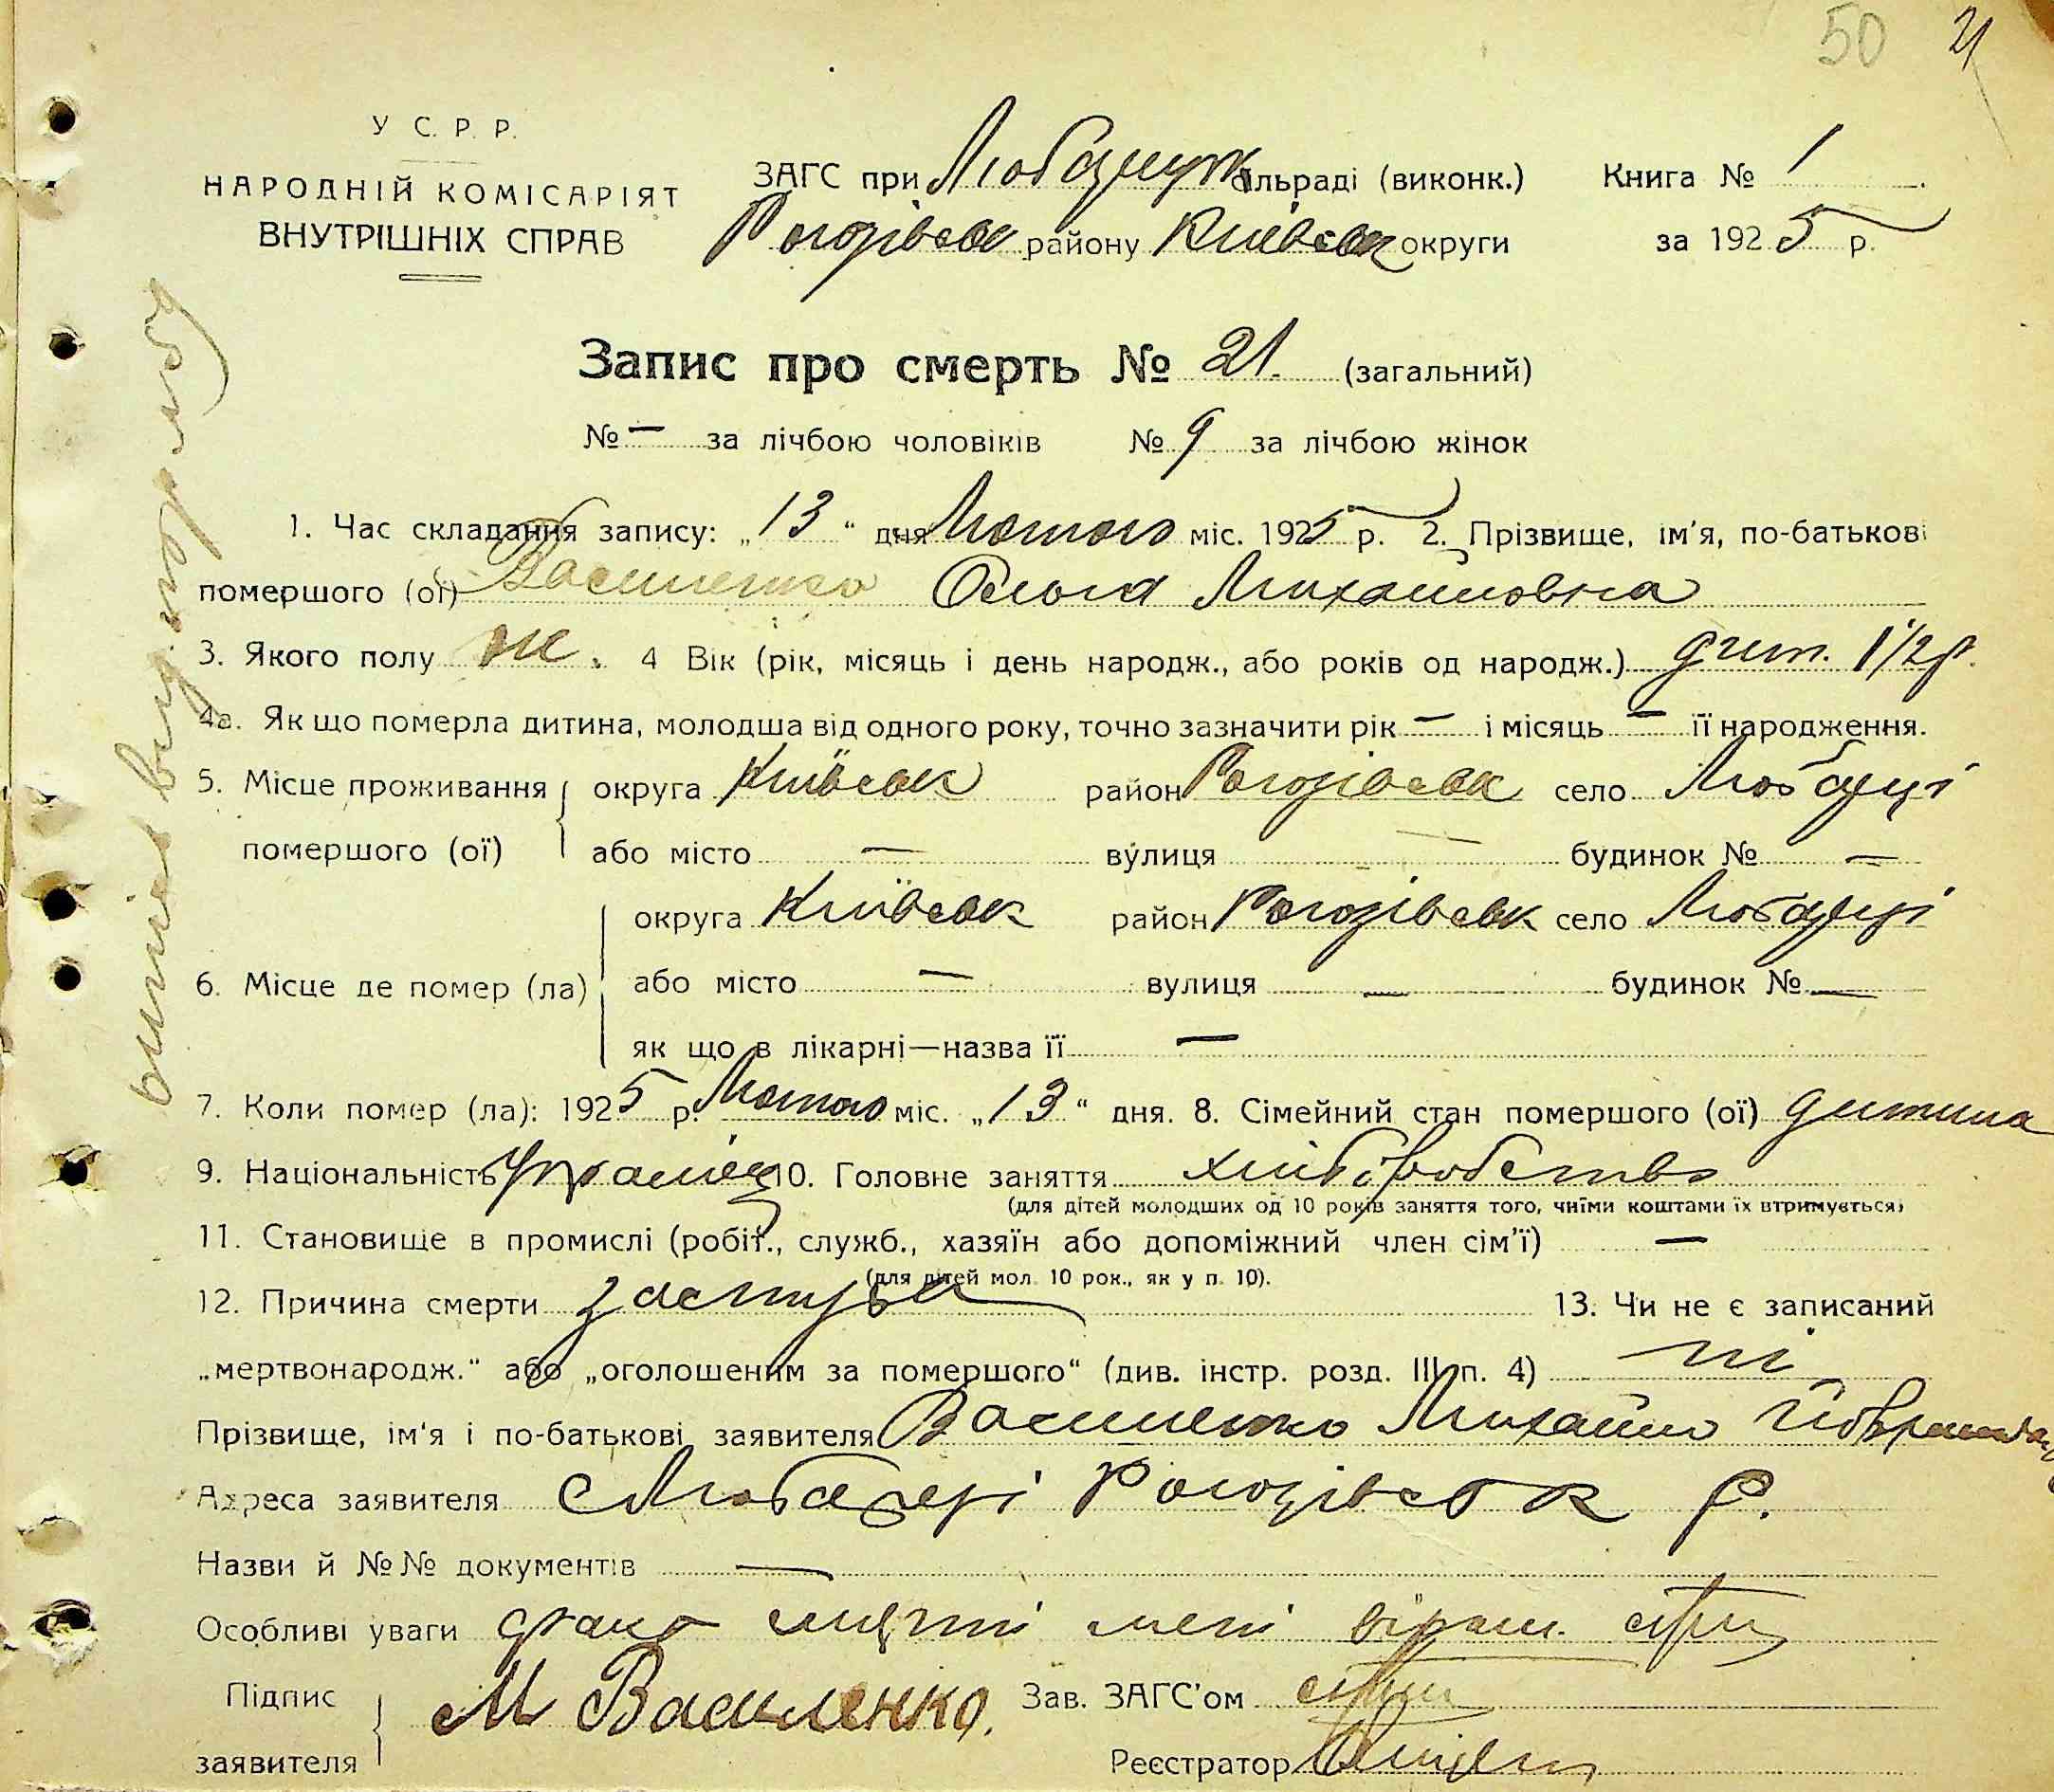 50 21
У С. Р. Р.
НАРОДНІЙ КОМІСАРІЯТ
ВНУТРІШНІХ СПРАВ
ЗАГС при Любарцук сільраді (виконк.)
Рогозівськ району Київськ округи
Книга № 1
за 1925 р.
Запис про смерть № 21. (загальний)
№ — за лічбою чоловіків № 9 за лічбою жінок
1. Час складання запису: „13“ дня Лютого міс. 1925 р. 2. Прізвище, ім'я, по-батькові
помершого (ої) Василенко Ольга Михайловна
3. Якого полу ж. 4 Вік (рік, місяць і день народж., або років од народж.) дит. 1 1/2 р.
4а. Як що померла дитина, молодша від одного року, точно зазначити рік — і місяць — її народження.
5. Місце проживання помершого (ої) округа Київськ район Рогозівськ село Любарці
або місто — вулиця — будинок № —
6. Місце де помер (ла) округа Київськ район Рогозівськ село Любарці
або місто — вулиця — будинок № —
як що в лікарні—назва її —
7. Коли помер (ла): 1925 р. Лютого міс. „13“ дня. 8. Сімейний стан помершого (ої) дитина
9. Національність Українц 10. Головне заняття хліборобство
(для дітей молодших од 10 років заняття того, чиїми коштами їх втримується)
11. Становище в промислі (робіт., служб., хазяїн або допоміжний член сім'ї) —
(для дітей мол. 10 рок., як у п. 10).
12. Причина смерти застуда 13. Чи не є записаний
„мертвонародж.“ або „оголошеним за помершого“ (див. інстр. розд. III п. 4) ні
Прізвище, ім'я і по-батькові заявителя Василенко Михайло
Адреса заявителя с Любарці Рогозівськ р.
Назви й №№ документів —
Особливі уваги факт смерті мені
Підпис заявителя М Василенко. Зав. ЗАГС'ом
Реєстратор